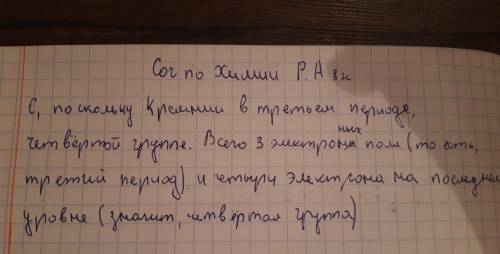 Соч по Химии Р. А 8к
С, поскольку Кремнии в третьем периоде,
четвёртой группе. Всего 3 электронных поля (то есть,
третий период) и четыри электрона на последнем
уровне (значит, четвёртая группа)